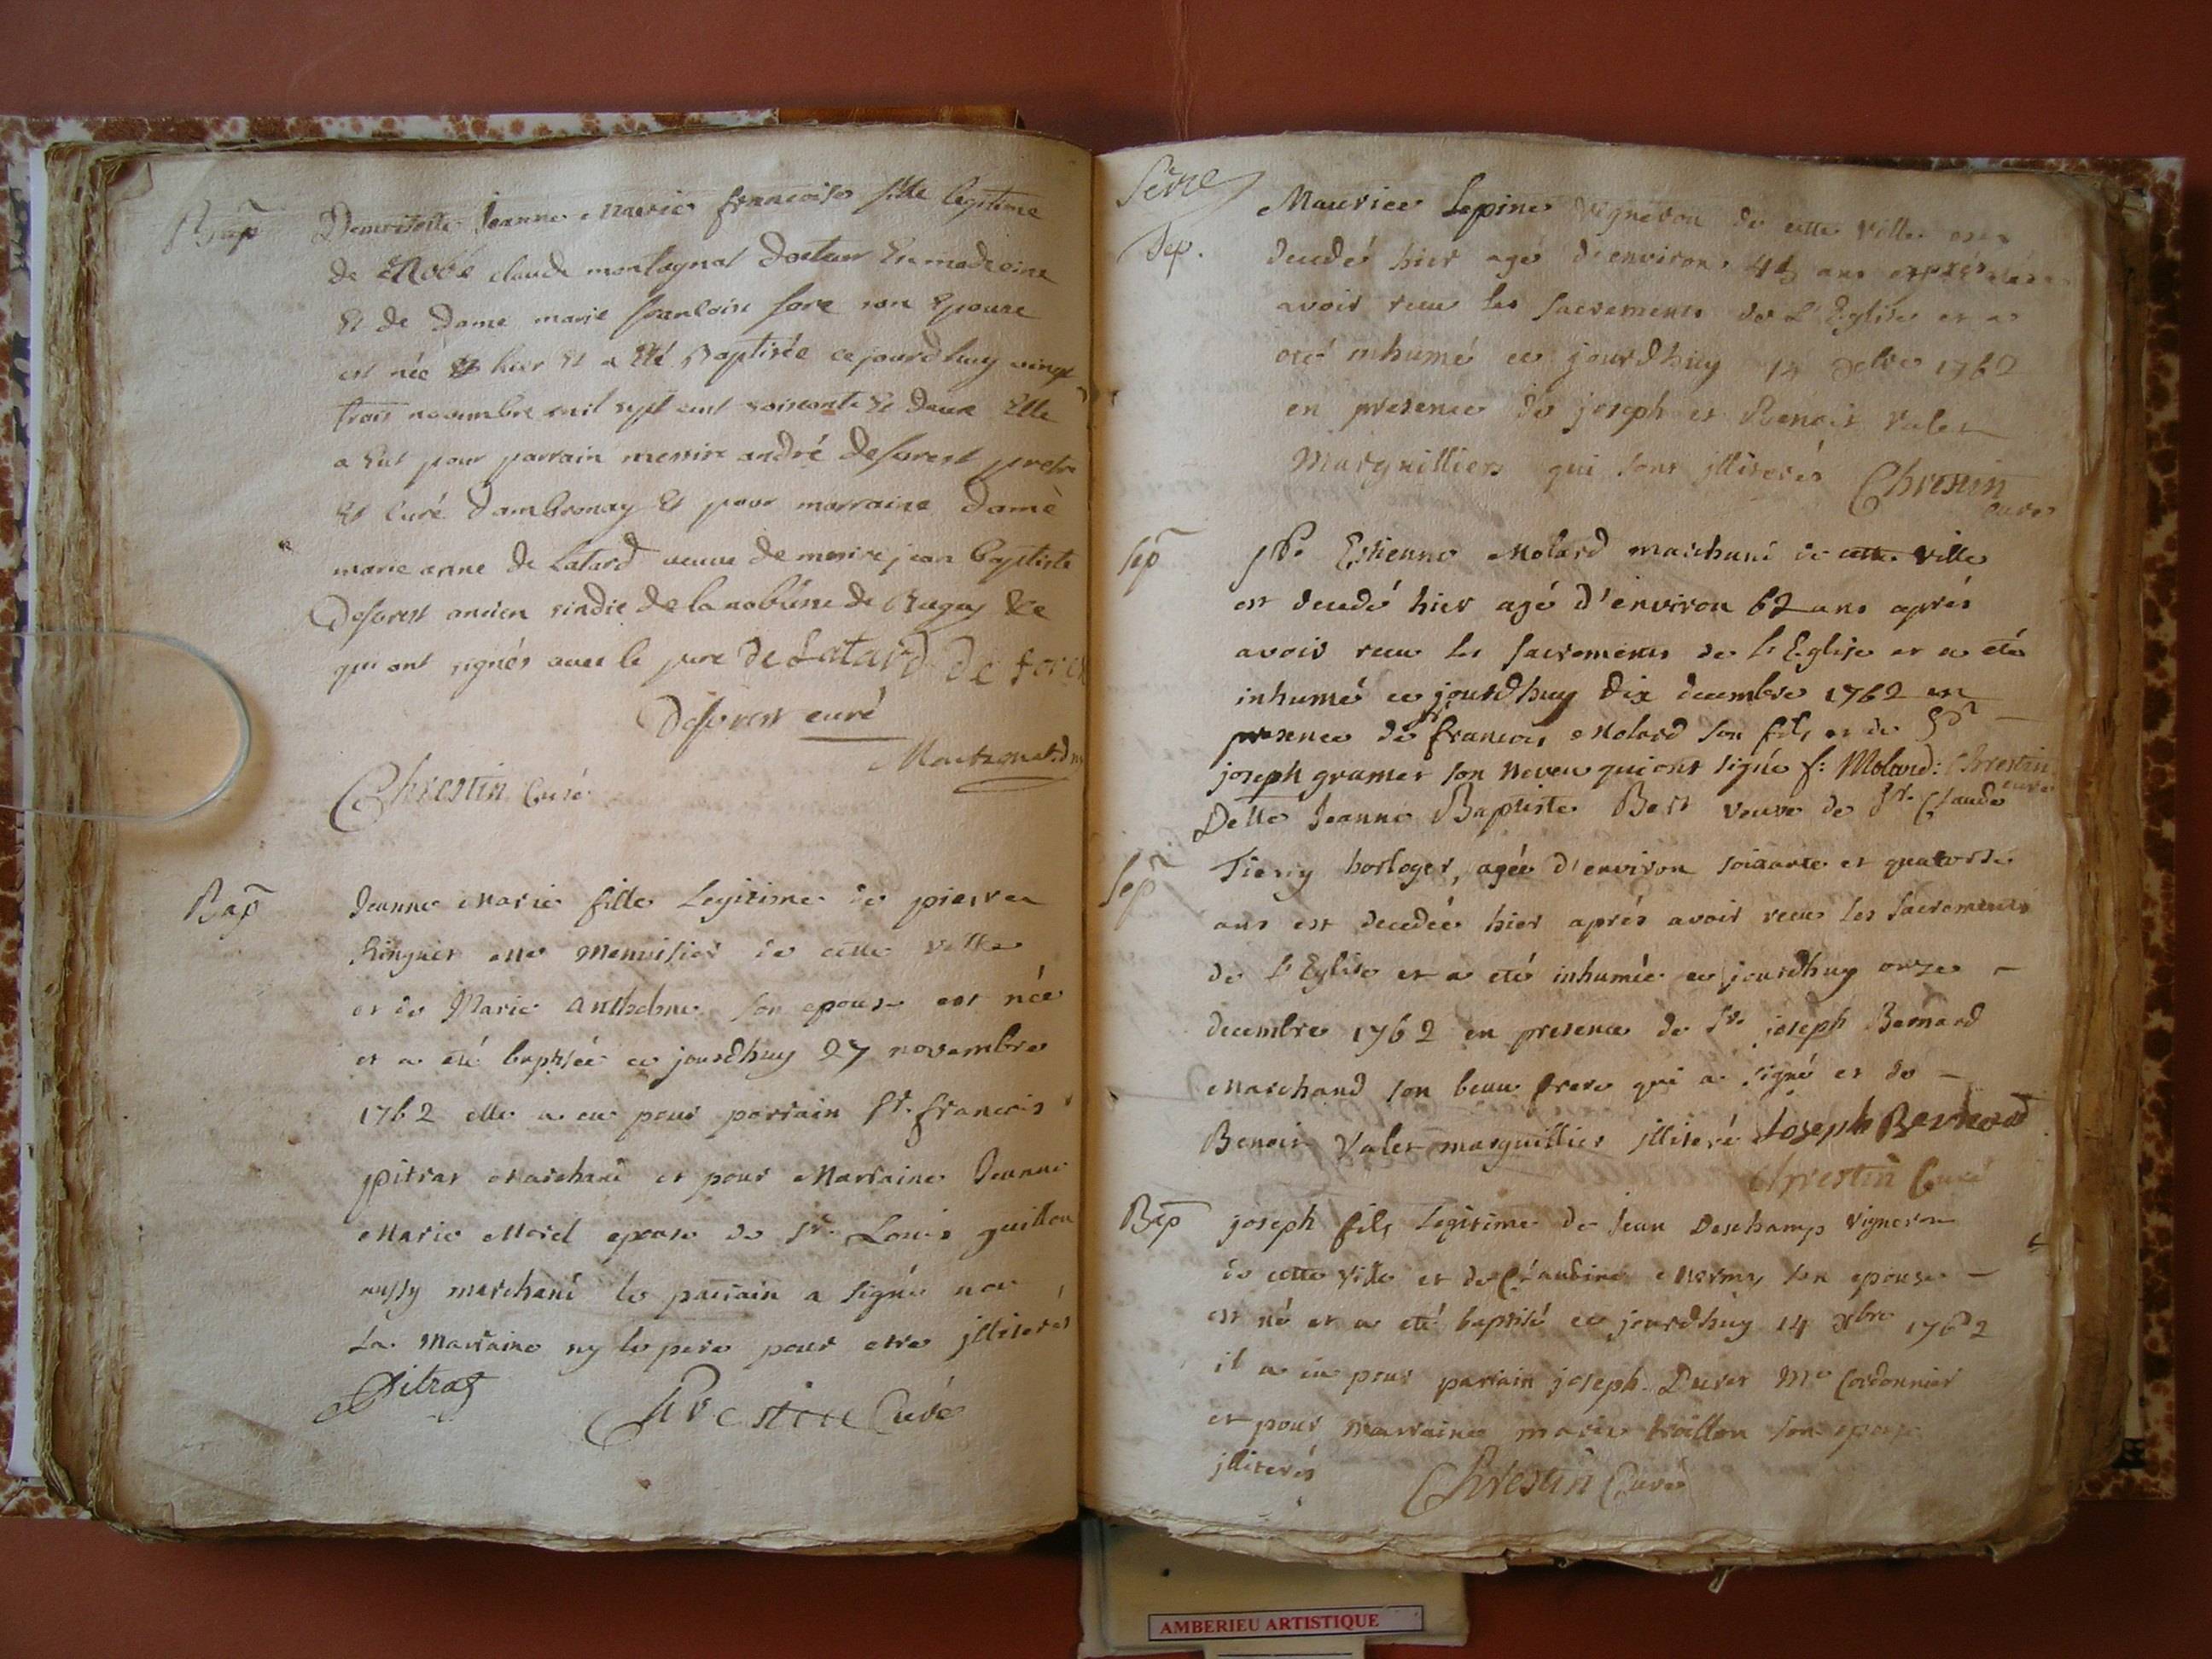 Bap
Demoiselle Jeanne Marie francoise fille legitime
de Noble claude montagnat docteur En medecine
Et de dame marie francoise fore son Epouse
est née hier Et a Eté Baptisée ce jourdhuy vingt
trois novembre mil sept cent soixante Et deux Elle
a Eut pour parrain messire andré deforest pretre
Et curé dambronay Et pour marraine dame
marie anne de Latard veuve de messire jean baptiste
deforest ancien sindic de la noblesse de Bugey &c
qui ont signés avec le pere de Latard de forest
Deforest curé
Chrestin Curé
Bap
Jeanne Marie fille Legitime de pierre
Ringuet me Menuisier de cette ville
et de Marie Anthelme son epouse est née
et a eté baptisée ce jourdhuy 27 novembre
1762 elle a eu pour parrain Sr. francois
pitrat Marchand et pour Marraine Jeanne
Marie Morel epouse de Sr. Louis guillon
aussy marchand le parrain a signé non
La Marraine ny le pere pour etre jlliterés
Pitrat
Chrestin Curé
Sep.
Maurice Lepine Vigneron de cette ville est
decedé hier agé d'environ 45 ans
avoir receu les sacrements de L'Eglise et a
eté inhumé ce jourdhuy 1762
en presence de joseph et Benoit Valet
Marguilliers qui sont jlliterés Chrestin
curé
Sep
Sr. Estienne Molard marchand de cette ville
est decedé hier agé d'environ 62 ans aprés
avoir receu les sacrements de l'Eglise et a eté
inhumé ce jourdhuy dix decembre 1762 en
presence de Sr. francois Molard son fils et de Sr
joseph gramer son neveu qui ont signé f: Molard: Chrestin
curé
Delle Jeanne Baptiste Bert veuve de Sr. Claude
Sep
Tieny horloger, agée d'environ soixante et quatorse
ans est decedée hier aprés avoir receu les sacrements
de l'Eglise et a eté inhumée ce jourdhuy onze
decembre 1762 en presence de Sr. joseph Bernard
Marchand son beau frere qui a signé et de
Benoit Valet marguillier jlliteré Joseph Bernard
Chrestin Curé
Bap
joseph fils Legitime de Jean Deschamps Vigneron
de cette ville et de Claudine son epouse
est né et a eté baptisé ce jourdhuy 14 Xbre 1762
il a eu pour parrain joseph Duret Me Cordonnier
et pour marraine marie son epouse
jlliterés
Chrestin Curé
AMBERIEU ARTISTIQUE